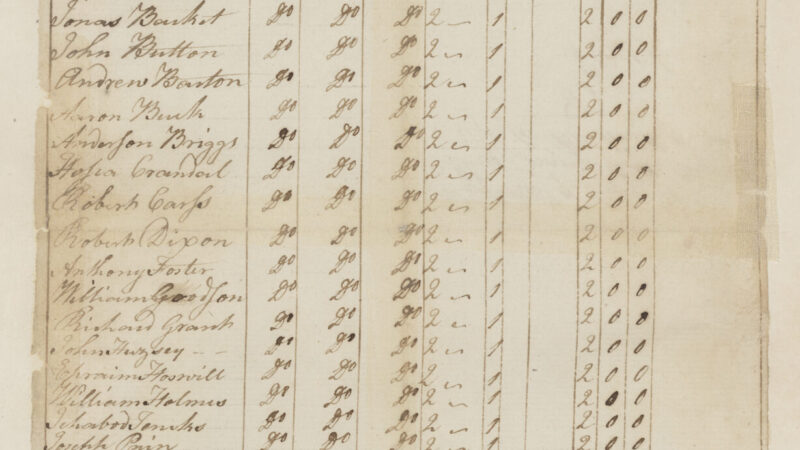 Jonas Basket Do Do Do 2 " 1 2 0 0
John Button Do Do Do 2 " 1 2 0 0
Andrew Barton Do Do Do 2 " 1 2 0 0
Aaron Buck Do Do Do 2 " 1 2 0 0
Anderson Briggs Do Do Do 2 " 1 2 0 0
Hosea Crandal Do Do Do 2 " 1 2 0 0
Robert Carss Do Do Do 2 " 1 2 0 0
Robert Dixon Do Do Do 2 " 1 2 0 0
Anthony Foster Do Do Do 2 " 1 2 0 0
William Goodson Do Do Do 2 " 1 2 0 0
Richard Grant Do Do Do 2 " 1 2 0 0
John Do Do Do 2 " 1 2 0 0
Ephraim Do Do Do 2 " 1 2 0 0
William Holmes Do Do Do 2 " 1 2 0 0
Ichabod Jencks Do Do Do 2 " 1 2 0 0
Joseph Do Do Do 2 " 1 2 0 0